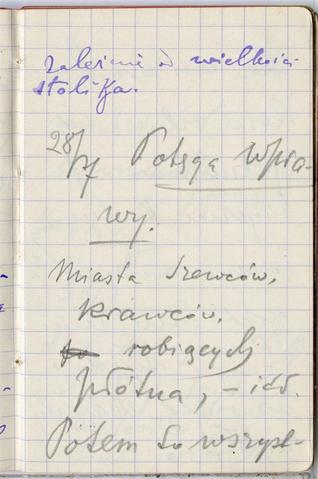 zależnie od wielkości
stolika.
28/7 Potęga Wpra-
wy.
Miasta szewców,
krawców,
robiących
płótna, – itd.
Potem to wszyst-